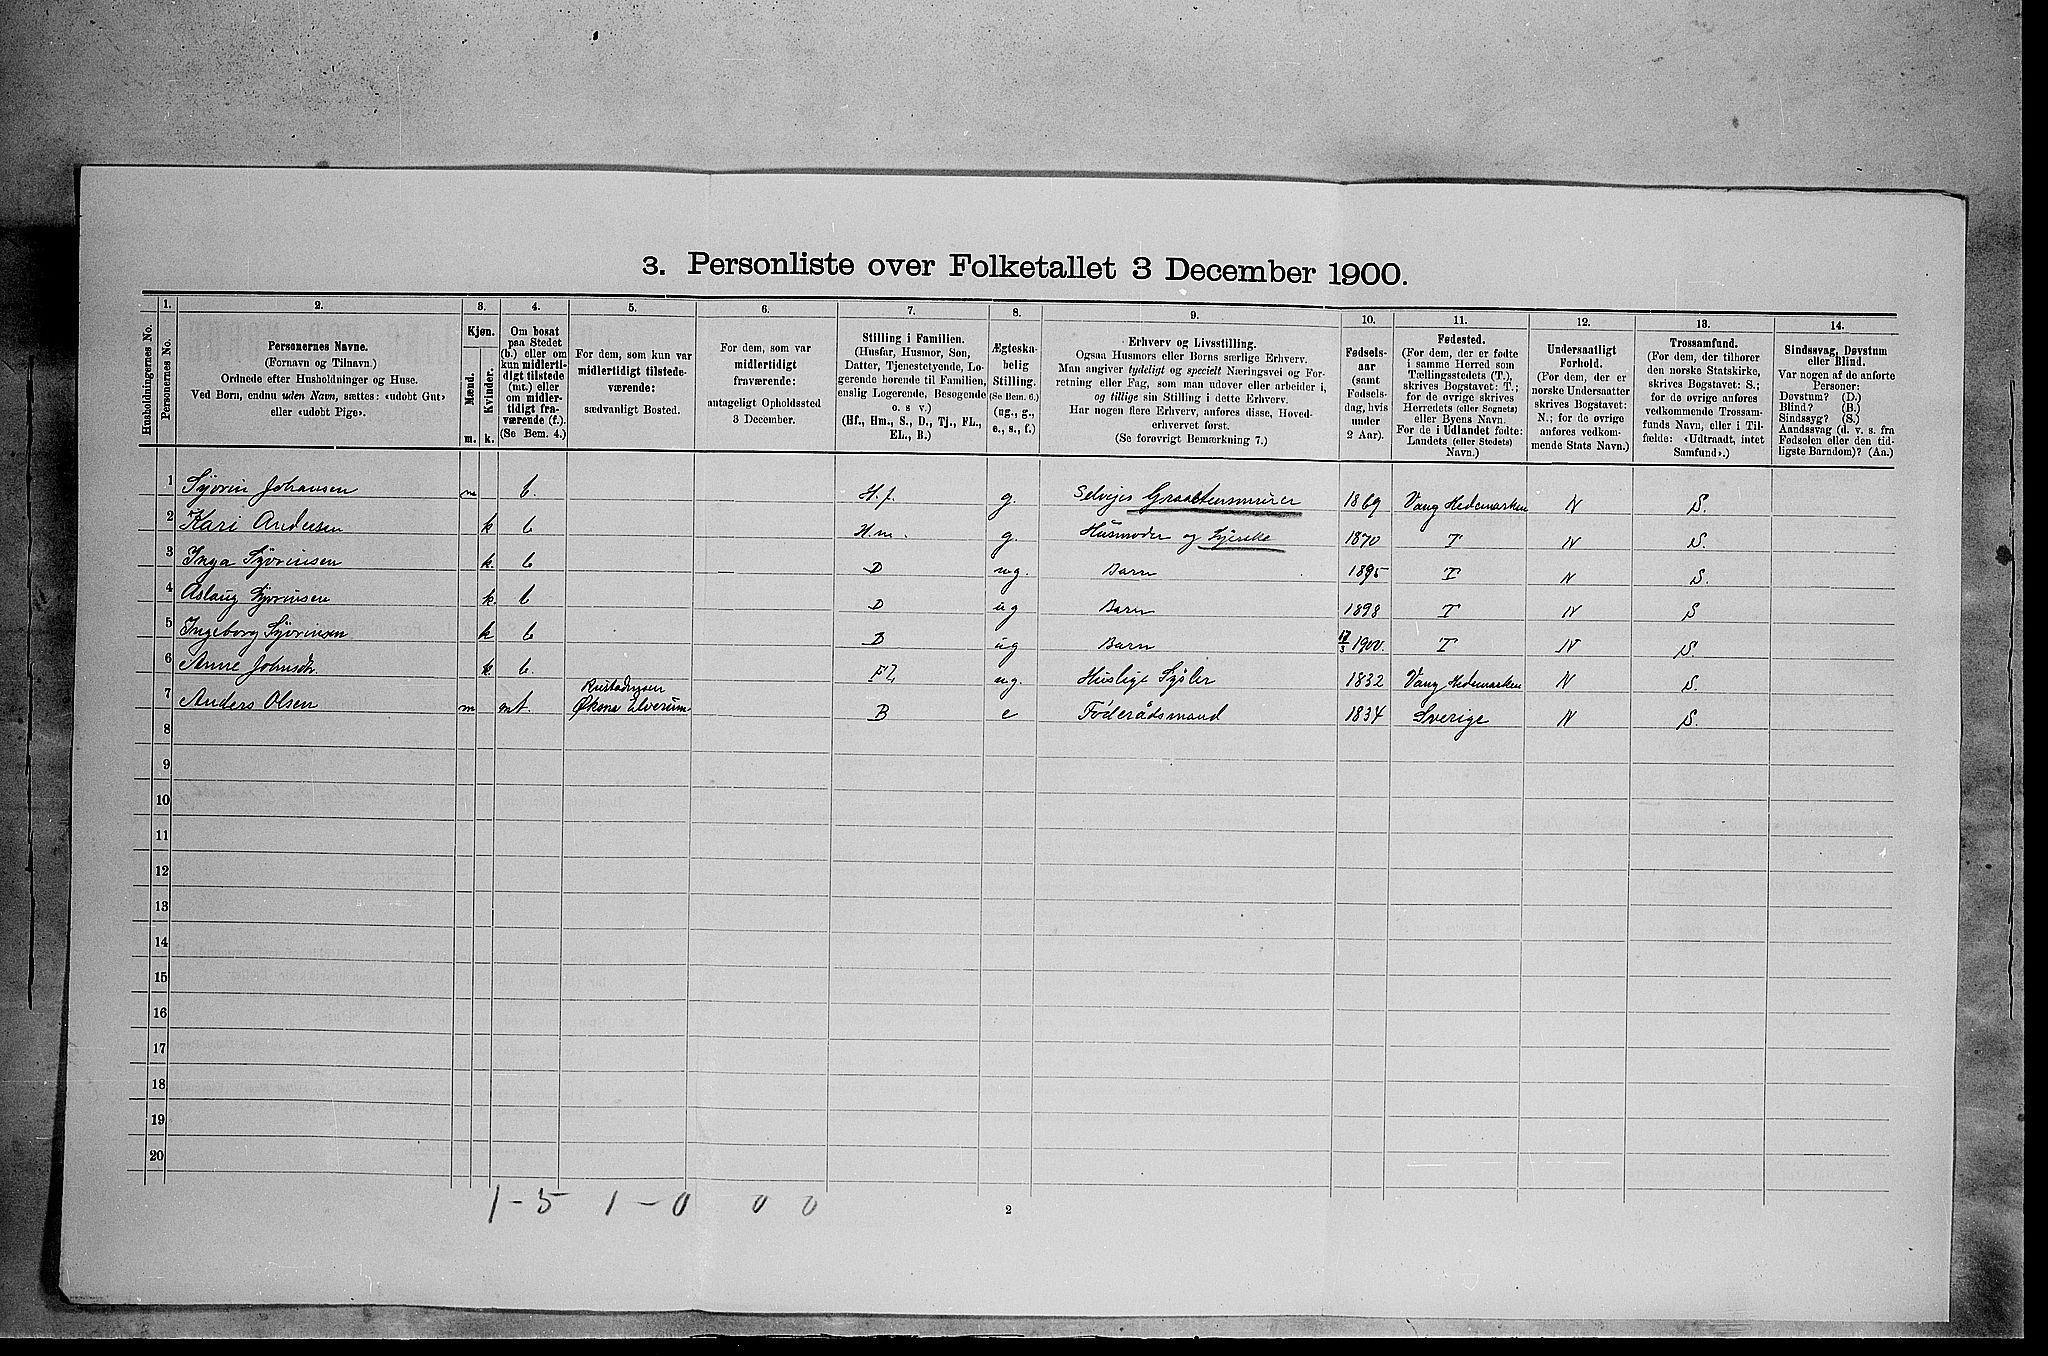 3. Personliste over Folketallet 3 December 1900.
1. 2. 3. 4. 5. 6. 7. 8. 9. 10. 11. 12. 13. 14.
Husholdningernes No.
Personernes No.
Personernes Navne.
(Fornavn og Tilnavn.)
Ordnede efter Husholdninger og Huse.
Ved Børn, endnu uden Navn, sættes: «udøbt Gut»
eller «udøbt Pige».
Kjøn.
Mænd.
Kvinder.
m. k.
Om bosat
paa Stedet
(b.) eller om
kun midlerti-
digt tilstede
(mt.) eller
om midler-
tidigt fra-
værende (f.).
(Se Bem. 4.)
For dem, som kun var
midlertidigt tilstede-
værende:
sædvanligt Bosted.
For dem, som var
midlertidigt
fraværende:
antageligt Opholdssted
3 December.
Stilling i Familien.
(Husfar, Husmor, Søn,
Datter, Tjenestetyende, Lo-
gerende hørende til Familien,
enslig Logerende, Besøgende
o. s v.)
(Hf., Hm., S., D., Tj., FL.,
EL., B.)
Ægteska-
belig
Stilling.
(Se Bem. 6.)
(ug., g.,
e., s., f.)
Erhverv og Livsstilling.
Ogsaa Husmors eller Børns særlige Erhverv.
Man angiver tydeligt og specielt Næringsvei og For-
retning eller Fag, som man udøver eller arbeider i,
og tillige sin Stilling i dette Erhverv.
Har nogen flere Erhverv, anføres disse, Hoved-
erhvervet først.
(Se forøvrigt Bemærkning 7.)
Fødsels-
aar
(samt
Fødsels-
dag, hvis
under
2 Aar).
Fødested.
(For dem, der er fødte
i samme Herred som
Tællingsstedets (T.),
skrives Bogstavet: T.;
for de øvrige skrives
Herredets (eller Sognets)
eller Byens Navn.
For de i Udlandet fødte:
Landets (eller Stedets)
Navn.)
Undersaatligt
Forhold.
(For dem, der er
norske Undersaatter
skrives Bogstavet:
N.; for de øvrige
anføres vedkom-
mende Stats Navn.)
Trossamfund.
(For dem, der tilhører
den norske Statskirke,
skrives Bogstavet: S.;
for de øvrige anføres
vedkommende Trossam-
funds Navn, eller i Til-
fælde: «Udtraadt, intet
Samfund».)
Sindssvag, Døvstum
eller Blind.
Var nogen af de anførte
Personer:
Døvstum? (D.)
Blind? (B.)
Sindssyg? (S.)
Aandssvag (d. v. s. fra
Fødselen eller den tid-
ligste Barndom)? (Aa.)
1 Syvrin Johansen m b. H.f. g. Selvejes Graastensmurer 1869 Vang Hedemarken N S.
2 Kari Andersen k b H.m. g. Husmoder og Syerske 1870 T N S.
3 Inga Syvrinsen k. b D ug. Barn 1895 T N S.
4 Aslaug Syvrinsen k. b D ug Barn 1898 T N S
5 Ingeborg Syvrinsen k b D ug Barn 1900. T N S.
6 Anne Johnsdr. k. b. FL ug. Huslige Sysler 1832 Vang Hedemarken N S.
7 Anders Olsen m mt. Øksna Elverum B e Föderådsmand 1834 Sverige N S.
8
9
10
11
12
13
14
15
16
17
18
19
20
1-5 1-0 0 0
2